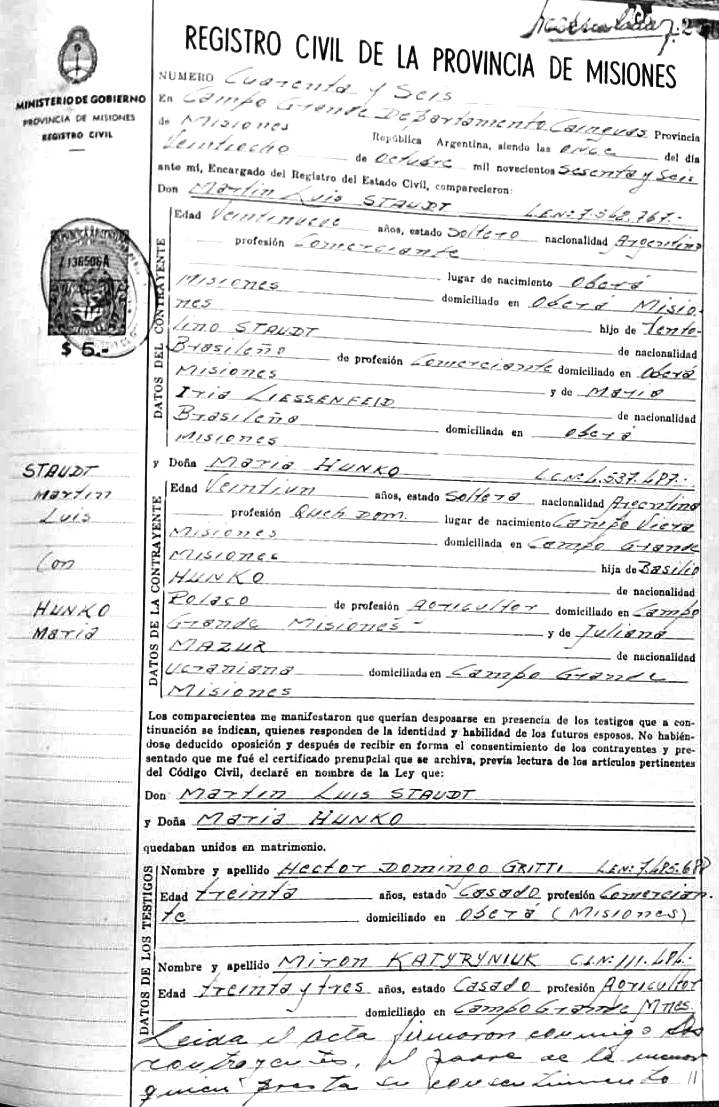 REGISTRO CIVIL DE LA PROVINCIA DE MISIONES
MINISTERIO DE GOBIERNO
PROVINCIA DE MISIONES
REGISTRO CIVIL
NUMERO Cuarenta y Seis
En Campo Grande Departamento Cainguas Provincia
de Misiones República Argentina, siendo las once del día
Veintiocho de octubre mil novecientos sesenta y Seis
ante mi, Encargado del Registro del Estado Civil, comparecieron:
Don Martin Luis STAUDT L.E.Nº: 7.548.767.-
DATOS DEL CONTRAYENTE
Edad Veintinueve años, estado Soltero nacionalidad Argentino
profesión Comerciante
lugar de nacimiento Oberá
Misiones domiciliado en Oberá Misio-
nes hijo de Tento-
lino STAUDT de nacionalidad
Brasileño de profesión Comerciante domiciliado en Oberá
Misiones y de Maria
Iria LIESSENFELD de nacionalidad
Brasileña domiciliada en Oberá
Misiones
136506A
$ 5.-
STAUDT
Martin
Luis
Con
HUNKO
Maria
y Doña Maria HUNKO L.C.Nº 4.537.487.-
DATOS DE LA CONTRAYENTE
Edad Veintiun años, estado Soltera nacionalidad Argentina
profesión Queh Dom. lugar de nacimiento Campo Viera
Misiones domiciliada en Campo Grande
Misiones hija de Basilio
HUNKO de nacionalidad
Polaco de profesión Agricultor domiciliado en Campo
Grande Misiones - y de Juliana
MAZUR de nacionalidad
Ucraniana domiciliada en Campo Grande
Misiones
Los comparecientes me manifestaron que querían desposarse en presencia de los testigos que a con-
tinuación se indican, quienes responden de la identidad y habilidad de los futuros esposos. No habién-
dose deducido oposición y después de recibir en forma el consentimiento de los contrayentes y pre-
sentado que me fué el certificado prenupcial que se archiva, previa lectura de los artículos pertinentes
del Código Civil, declaré en nombre de la Ley que:
Don Martin Luis STAUDT
y Doña Maria HUNKO
quedaban unidos en matrimonio.
DATOS DE LOS TESTIGOS
Nombre y apellido Hector Domingo GRITTI L.E.Nº: 7.485.688
Edad treinta años, estado Casado profesión Comercian-
te domiciliado en Oberá (Misiones)
Nombre y apellido Miron KATYRYNIUK C.I.Nº: 111.484.
Edad treinta y tres años, estado Casado profesión Agricultor
domiciliado en Campo Grande Mnes.
Leida el acta firmaron conmigo los
contrayentes, el padre de la menor
quien presta su consentimiento //